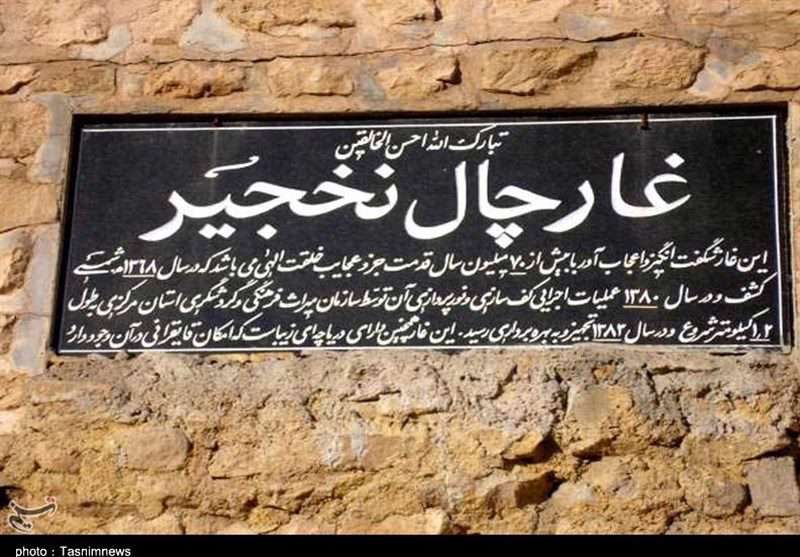 تبارک الله احسن الخالقین
غار چال نخجیر
این غار شگفت انگیز و اعجاب آور با بیش از ۷۰ میلیون سال قدمت جزو عجایب خلقت الهی می باشد که در سال ۱۳۶۸ ه شمسی
کشف و در سال ۱۳۸۰ عملیات اجرایی کف سازی و نور پردازی آن توسط سازمان میراث فرهنگی و گردشگری استان مرکزی بطول
۱/۲ کیلومتر شروع و در سال ۱۳۸۲ تجهیز و به بهره برداری رسید. این غار همچنین دارای دریاچه ای زیباست که امکان قایقرانی در آن وجود دارد
photo : Tasnimnews